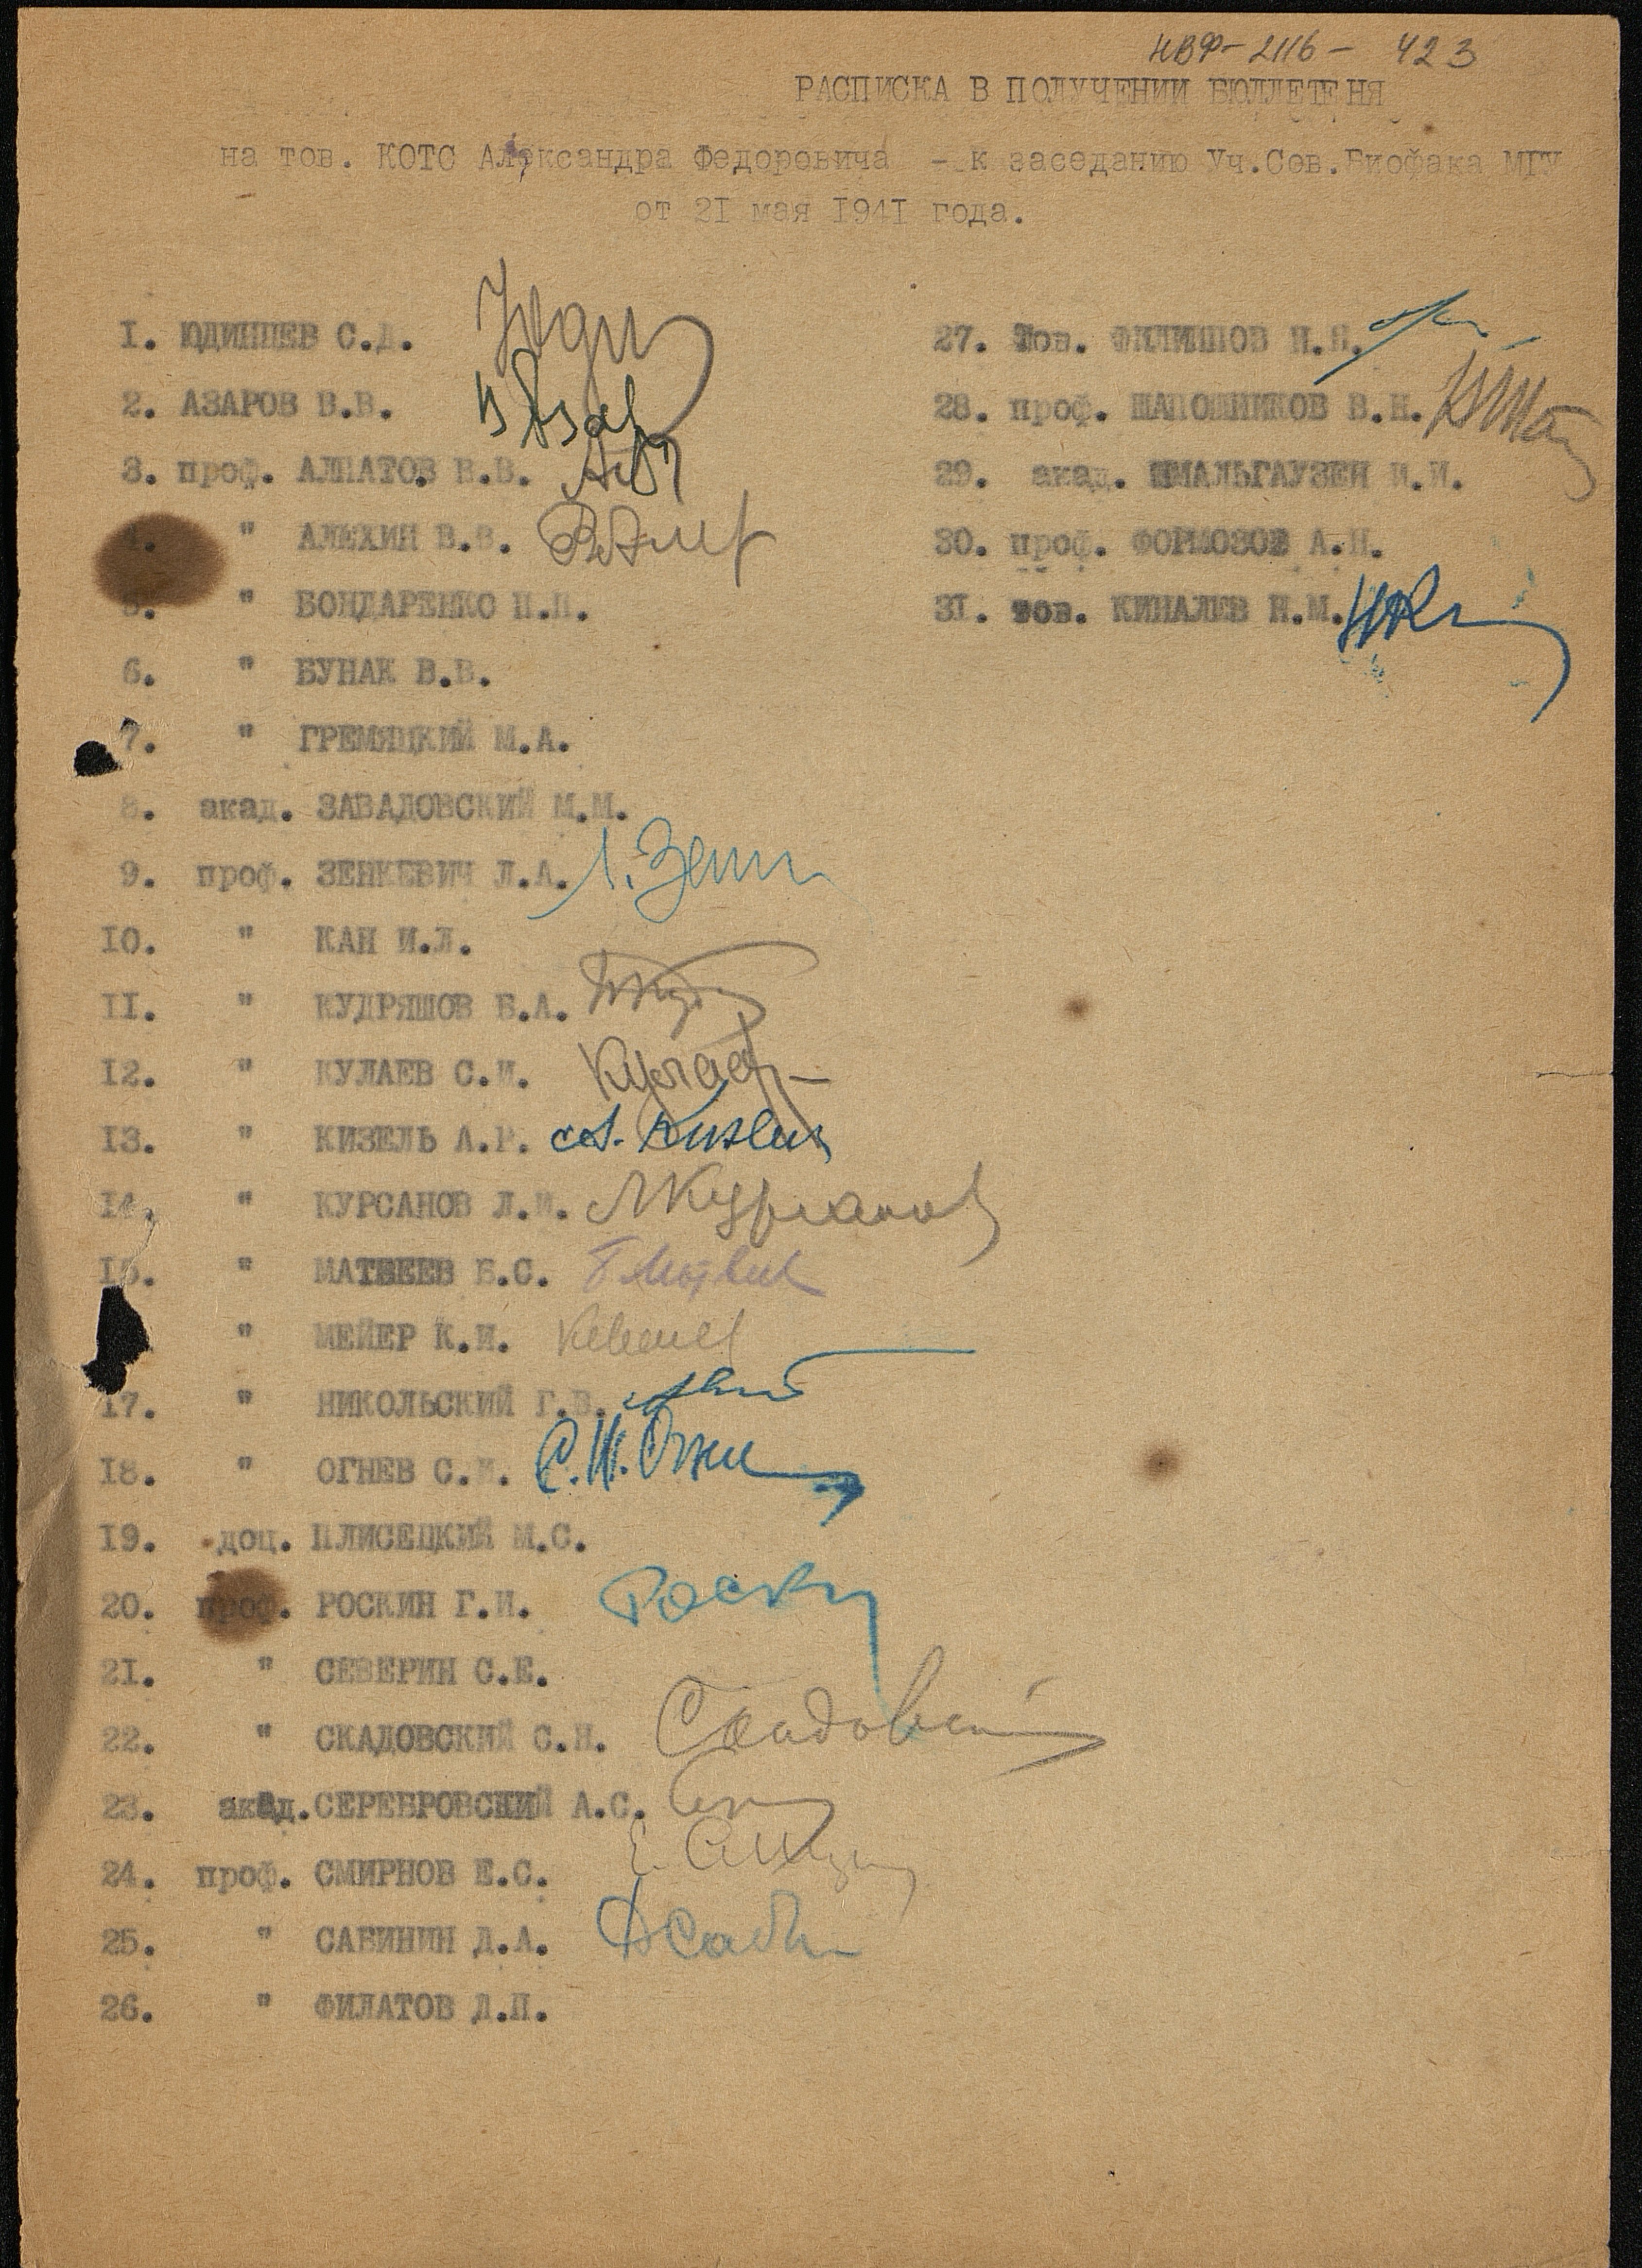 НВФ-2116-423
РАСПИСКА В ПОЛУЧЕНИИ БЮЛЛЕТЕНЯ
на тов. КОТС Александра Федоровича - к заседанию Уч.Сов.Биофака МГУ
от 21 мая 1941 года.
1. ЮДИНЦЕВ С.Д. Юдин
2. АЗАРОВ В.В.
3. проф. АЛПАТОВ В.В.
4. " АЛЕХИН В.В.
5. " БОНДАРЕНКО П.П.
6. " БУНАК В.В.
7. " ГРЕМЯЦКИЙ М.А.
8. акад. ЗАВАДОВСКИЙ М.М.
9. проф. ЗЕНКЕВИЧ Л.А. Л. Зенк
10. " КАН И.Л.
11. " КУДРЯШОВ Б.А.
12. " КУЛАЕВ С.И. Кулаев
13. " КИЗЕЛЬ А.Р. А. Кизель
14. " КУРСАНОВ Л.И. ЛКурсанов
15. " МАТВЕЕВ Б.С. БМатвеев
" МЕЙЕР К.И. КМейер
17. " НИКОЛЬСКИЙ Г.В.
18. " ОГНЕВ С.И. С.И. Огнев
19. доц. ПЛИСЕЦКИЙ М.С.
20. проф. РОСКИН Г.И. Роскин
21. " СЕВЕРИН С.Е.
22. " СКАДОВСКИЙ С.Н. Скадовский
23. акад. СЕРЕБРОВСКИЙ А.С.
24. проф. СМИРНОВ Е.С. Е. Смирн
25. " САБИНИН Д.А. ДСаби
26. " ФИЛАТОВ Д.П.
27. Тов. ФИЛИППОВ Н.Н.
28. проф. ШАПОШНИКОВ В.Н. ВШап
29. акад. ШМАЛЬГАУЗЕН И.И.
30. проф. ФОРМОЗОВ А.Н.
31. тов. КИНАЛЕВ Н.М.